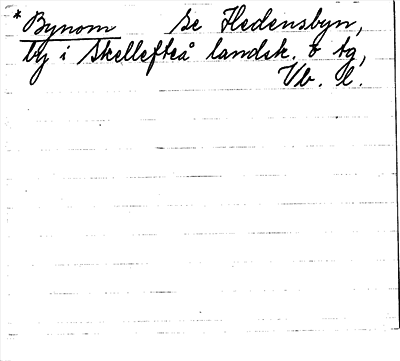 * Bynom se Hedensbyn,
by i Skellefteå landsk. o tg,
Vb. l.